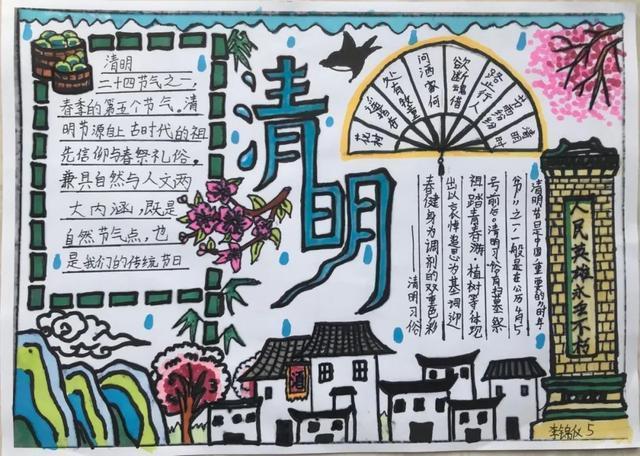 清明
二十四节气之一,
春季的第五个节气。清
明节源自上古时代的祖
先信仰与春祭礼俗。
兼具自然与人文两
大内涵,既是
自然节气点,也
是我们的传统节日
清明
清明时
节雨纷纷
路上行人
欲断魂借
问酒家何
处有牧童
遥指杏
花村
清明节是中国重要的"时年
节"之一,一般是在公历4月5
号前后。清明习俗有扫墓祭
祖、踏青春游、植树等体现
出以哀悼追思为基调迎
春健身为调剂的双重色彩
——清明习俗
人民英雄永垂不朽
酒
李锦 5